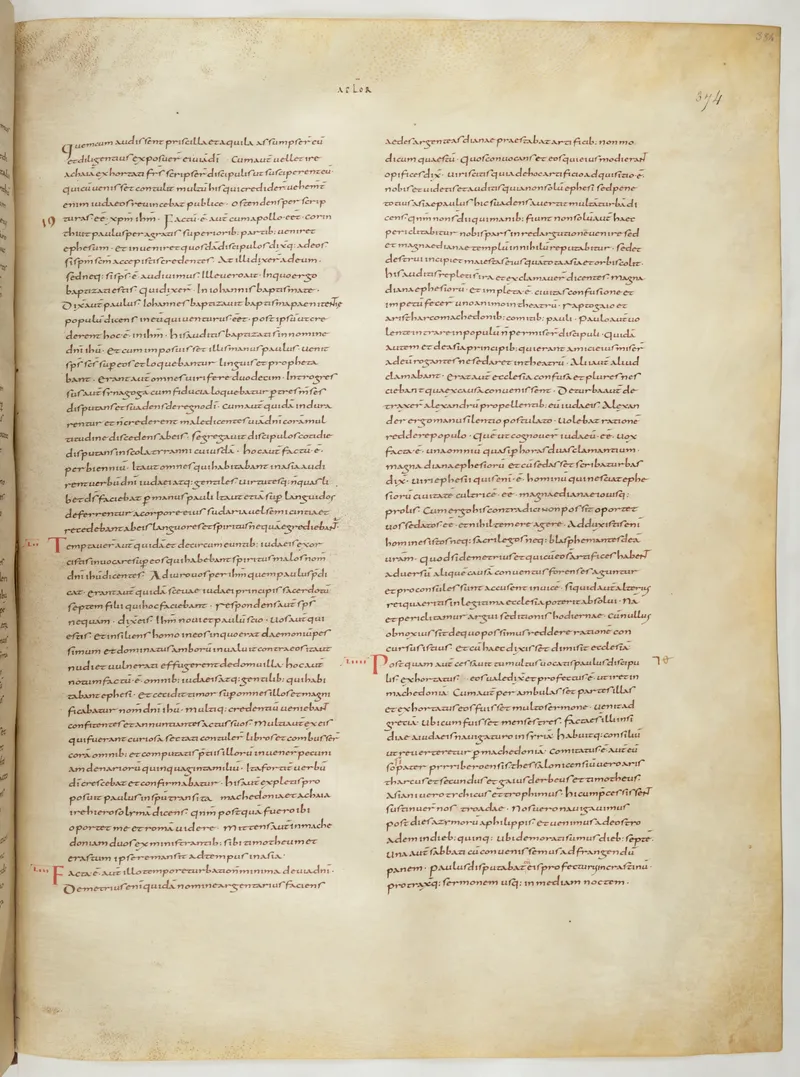 ACTVUM
374
Quem cum audissent priscilla et aquila assumpser̄ eū
et diligentius exposuer̄ ei uiā dn̄i · Cum aut̄ uellet ire
achaiā exhortati fr̄s scripser̄ discipulis ut susciperent eū ·
qui cū uenisset contulit multū his qui crediderū uehem̄t
enim iudaeos reuincebat publice · ostendens per scrip
19 turas eē xp̄m ih̄m · Factū ē aut̄ cum apollo eēt · corin
thi ut paulus peragratis superiorib; partib; ueniret
ephesum · et inueniret quosdā discipulos dix̄q; ad eos ·
si sp̄m sc̄m accepistis credentes · At illi dixer̄ ad eum ·
sed neq; si sp̄s ē audiuimus · Ille uero ait · In quo ergo
baptizati estis · Qui dixer̄ · In iohannis baptismate ·
Dix̄ aut̄ paulus · Iohannes baptizauit baptisma paenitentię
populū dicens in eū qui uenturus eēt · post ipsū ut cre
derent hoc ē in ih̄m · his auditis baptizati s̄ in nomine
dn̄i ih̄u · et cum imposuisset illis manus paulus · uenit
sp̄s sc̄s sup eos et loquebantur linguis et propheta
bant · erant aut̄ omnes uiri fere duodecim · Introgres
sus aut̄ synagogā cum fiducia loquebatur p tres m̄ses
disputans et suadens de regno dī · Cum aut̄ quidā indura
rentur et n̄ crederent maledicentes uiā dn̄i corā mul
titudine discedens ab eis · segregauit discipulos cotidie
disputans in scola tyranni cuiusdā · hoc aut̄ factū ē ·
per biennīu · Ita ut omnes qui habitabant in asia audi
rent uerbū dn̄i iudaei atq; gentiles uirtutesq; n̄ quasli
bet d̄s faciebat p manus pauli Ita ut etiā sup languidos
deferrentur a corpore eius sudaria uel semicintia et
recedebant ab eis languores et sp̄s nequā egrediebant̄ ·
Temptauer̄ aut̄ quidā et de circumeuntib; iudaeis exor
cistis inuocare sup eos qui habebant sp̄s malos nom̄
dn̄i ih̄u dicentes · Adiuro uos per ih̄m quem paulus p̄di
cat · erant aut̄ quidā sceuae iudaei principis sacerdotū
septem filii qui hoc faciebant · respondens aut̄ sp̄s
nequam · dix̄ eis · Ih̄m noui et paulū scio · Uos aut̄ qui
estis · et insiliens homo in eos in quo erat daemoniū pes
simum et dominatus amborū inualuit contra eos ita ut
nudi et uulnerati effugerent de domo illa · hoc aut̄
notum factū ē · omnib; iudaeis atq; gentilib; qui habi
tabant ephesi · et cecidit timor sup omnes illos et magni
ficabatur nom̄ dn̄i ih̄u · multiq; credentiū ueniebant̄
confitentes et annuntiantes actus suos · Multi aut̄ ex eis
qui fuerant curiosa sectati contuler̄ libros et combusser̄
corā omnib; et computatis p̄tiis illorū inuener̄ pecuni
am denariorū quinquaginta miliū · Ita fortit̄ uerbū
dī crescebat et confirmabatur · his aut̄ expletis pro
posuit paulus in sp̄u transita machedonia et achaia
ire hierosolymā dicens · qn̄m postquā fuero ibi
oportet me et romā uidere · mittens aut̄ in mache
doniam duos ex ministrantib; sibi timotheum et
erastum ipse remansit ad tempus in asia ·
Facta ē aut̄ illo tempore turbatio n̄ minima de uia dn̄i ·
Demetrius eni quidā nomine argentarius faciens
aedes argenteas dianae praestabat artificib; non mo
dicum quaestū · quos conuocans et eos qui eiusmodi erant̄
opifices dix̄ · uiri scitis quia de hoc artificio adquisitio ē ·
nobis et uidetis et auditis quia non solū ephesi sed pene
totius asiae paulus hic suadens auertit multā turbā di
cens qn̄m non s̄ dii qui manib; fiunt non solū aut̄ haec
periclitabitur nobis pars in redargutione uenire sed
et magnae dianae templū in nihilū reputabitur · sed et
destrui incipiet maiestas eius quā tota asia et orbis colit ·
his auditis repleti s̄ ira et exclamauer̄ dicentes · magna
diana ephesiorū · et impleta ē · ciuitas confusione et
impetū fecer̄ uno animo in theatrū · rapto gaio et
aristharco machedonib; comitib; pauli · Paulo aut̄ uo
lente intrare in populū n̄ permiser̄ discipuli · quidā
autem et de asia principib; qui erant amici eius miser̄
ad eū rogantes ne se daret in theatrū · Alii aut̄ aliud
clamabant · erat aut̄ ecclesia confusa et plures nes
ciebant qua ex causa conuenissent · De turba aut̄ de
traxer̄ alexandrū propellentib; eū iudaeis · Alexan
der ergo manu silentio postulato · Uolebat ratione
reddere populo · Quē ut cognouer̄ iudaeū eē · uox
facta ē · una omniū quasi p horas duas clamantium ·
magna diana ephesiorū et cū sedasset scriba turbas
dix̄ · uiri ephesii quis eni ē · hominū qui nesciat ephe
siorū ciuitatē cultricē eē · magnae dianae iouisq;
prolis · Cum ergo his contradici non possit oportet
uos sedatos eē · et nihil temere agere · Adduxistis eni
homines istos neq; sacrilegos neq; blasphemantes deā
uram · quod si demetrius et qui cū eo s̄ artifices habent̄
aduersū aliquē causā conuentus forenses aguntur
et proconsules sunt accusent inuicē · siquid aut̄ alterius
rei quaeritis in legitima ecclesia poterit absolui · Nā
et periclitamur argui seditionis hodiernae · cū nullus
obnoxius sit de quo possimus reddere rationē con
cursus istius · et cū haec dixisset dimisit ecclesiā ·
Postquam aut̄ cessauit tumultus uocatis paulus discipu
lis · exhortatis · eos uale dix̄ et profectus ē · ut iret in
machedoniā · Cum aut̄ perambulasset partes illas
et exhortatus eos fuisset multo sermone · uenit ad
greciā · Ubi cum fuisset menses tres · factae s̄ illi insi
diae a iudaeis nauigaturo in syriā · habuitq; consiliū
ut reuerteretur p machedoniā · Comitatus ē aut̄ eū
sopater pyrri beroensis thessalonicensiū uero aris
tharcus et secundus et gaius derbeus et timotheus ·
Asiani uero trichius et trophimus · hi cum p̄cessissent̄
sustinuer̄ nos troadae · Nos uero nauigauimus
post dies azymorū a philippis et uenimus ad eos tro
adem in dieb; quinq; · ubi demorati sumus dieb; septē ·
Una aut̄ sabbati cū conuenissemus ad frangendū
panem · paulus disputabat eis profecturus in crastinū ·
protraxitq; sermonem usq; in mediam noctem ·